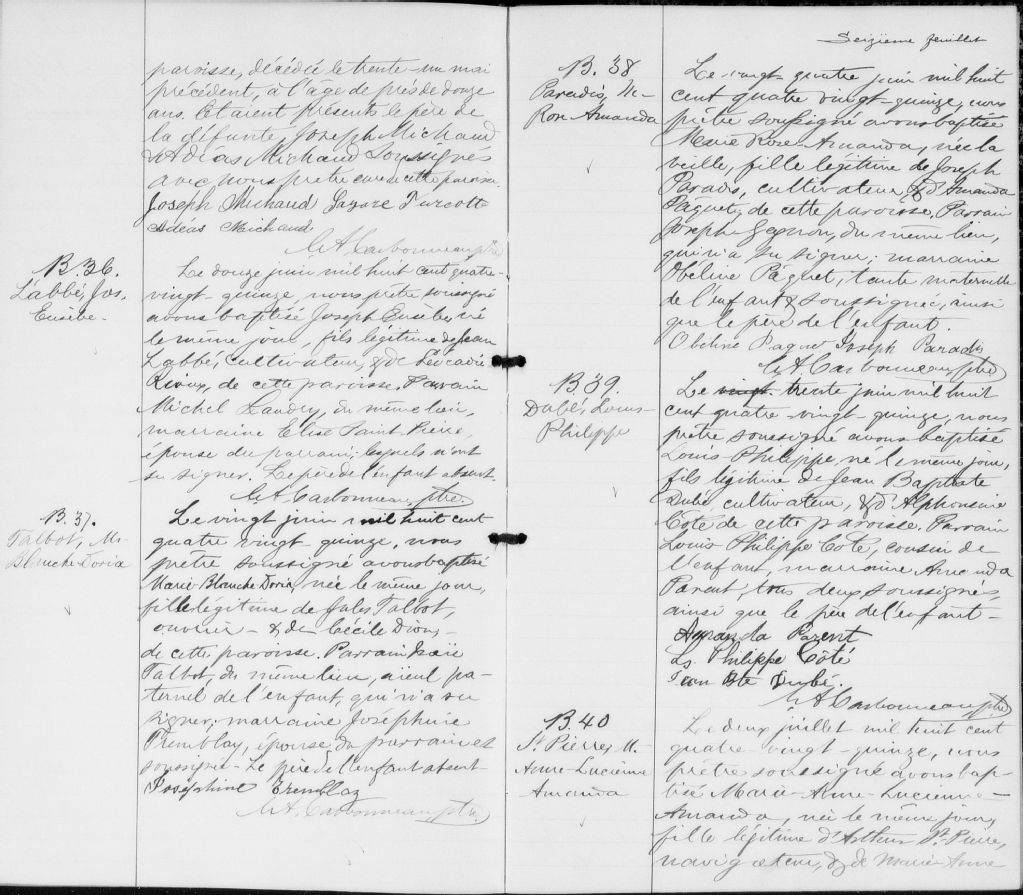 paroisse, décédée le trente-un mai
précédent, à l'age de près de douze
ans. Etaient présents le père de
la défunte, Joseph Michaud
& Adéas Michaud soussignés
avec nous prêtre curé de cette paroisse.
Joseph Michaud Lazare Turcotte
Adéas Michaud
G. A. Carbonneau, ptre
B. 36.
L'abbé, Jos.
Eusèbe.
Le douze juin mil huit cent quatre-
vingt-quinze, nous prêtre soussigné
avons baptisé Joseph Eusèbe, né
le même jour, fils légitime de Jean
Labbé, cultivateur, & de Léocadie
Rioux, de cette paroisse. Parrain
Michel Landry, du même lieu,
marraine Elise Saint-Pierre,
épouse du parrain; lesquels n'ont
su signer. Le père de l'enfant absent.
G. A. Carbonneau, ptre.
B. 37.
Talbot, M.
Blanche-Doria
Le vingt juin mil huit cent
quatre vingt quinze, nous
prêtre soussigné avons baptisé
Marie-Blanche Doria, née le même jour,
fille légitime de Jules Talbot,
ouvrier - & de Cécile Dion, -
de cette paroisse. Parrain Isaïe
Talbot, du même lieu, aïeul pa-
ternel de l'enfant, qui n'a su
signer; marraine Joséphine
Tremblay, épouse du parrain et
soussignée - Le père de l'enfant absent
Joséphine Tremblay
G. A. Carbonneau, ptre.
Seizième feuillet
B. 38
Paradis, M-
Rose-Amanda
Le vingt-quatre juin mil huit
cent quatre vingt-quinze, nous
prêtre soussigné avons baptisé
Marie Rose-Amanda, née la
veille, fille légitime de Joseph
Paradis, cultivateur & d'Amanda
Pâquet, de cette paroisse. Parrain
Joseph Gagnon, du même lieu,
qui n'a su signer; marraine
Obéline Pâquet, tante maternelle
de l'enfant & soussignée, ainsi
que le père de l'enfant.
Obeline Paquet Joseph Paradis
G. A. Carbonneau, ptre
B 39.
Dubé, Louis-
Philippe
Le vingt trente juin mil huit
cent quatre-vingt-quinze, nous
prêtre soussigné avons baptisé
Louis Philippe, né le même jour,
fils légitime de Jean Baptiste
Dubé, cultivateur, & d'Alphonsine
Côté de cette paroisse. Parrain
Louis Philippe Côté, cousin de
l'enfant, marraine Amanda
Parent, tous deux soussignés,
ainsi que le père de l'enfant -
Amanda Parent
Ls Philippe Côté
Jean Bte Dubé.
G. A. Carbonneau, ptre
B. 40
St Pierre, M.
Anne-Lucienne
Amanda
Le deux juillet mil huit cent
quatre-vingt-quinze, nous
prêtre soussigné avons bap-
tisé Marie-Anne-Lucienne-
Amanda, née le même jour,
fille légitime d'Arthur St-Pierre,
navigateur, & de Marie Anne